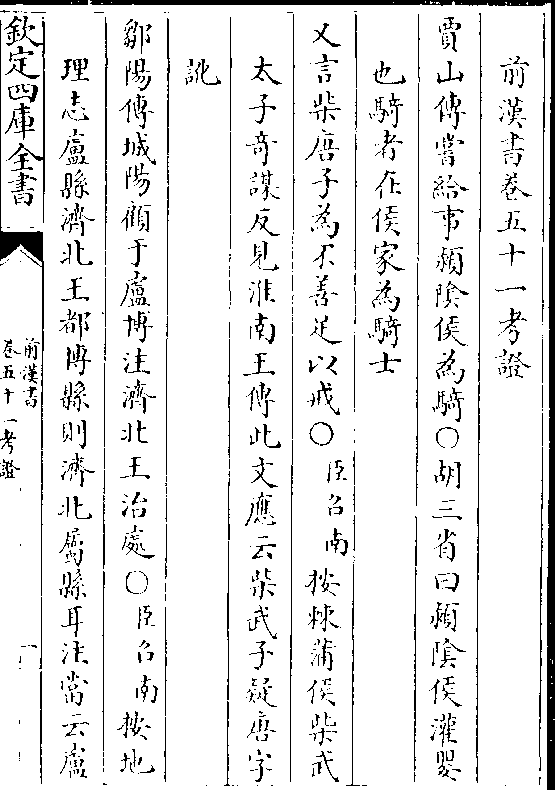 前漢書卷五十一考證
賈山傳嘗給事潁隂侯為騎○胡三省曰潁隂侯灌嬰
也騎者在侯家為騎士
又言柴唐子為不善足以戒○臣召南按棘蒲侯柴武
太子奇謀反見淮南王傳此文應云柴武子疑唐字
訛
鄒陽傳城陽顧于盧博注濟北王治處○臣召南按地
理志盧縣濟北王都博縣則濟北屬縣耳注當云盧
欽定四庫全書
前漢書
卷五十一考證
一